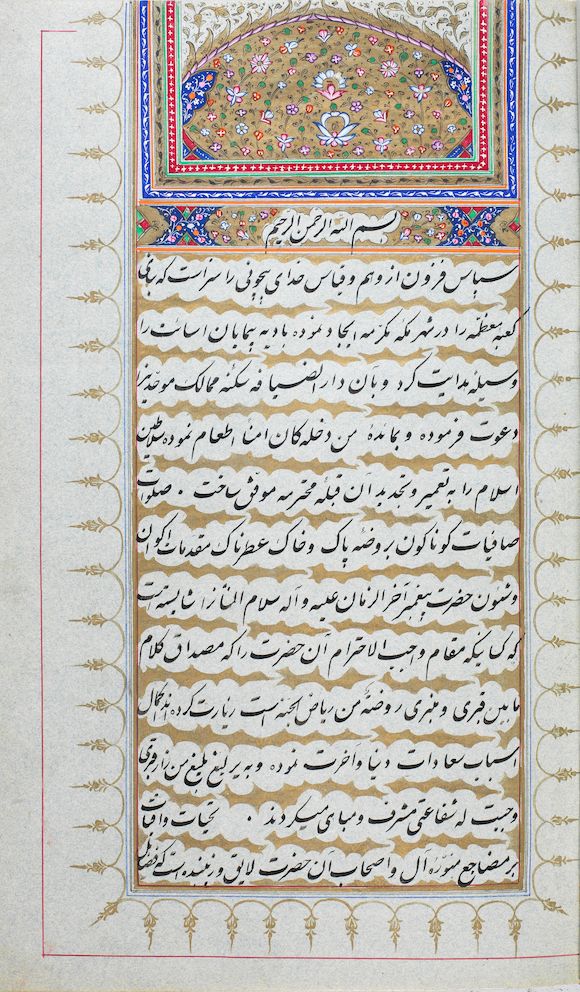 بسم الله الرحمن الرحیم
سپاس فزون از وهم و قیاس خدای بیچونی را سزاست که بانی
کعبه معظمه را در شهر مکه مکرمه ایجاد نموده بادیه پیمایان اسائت را
وسیله هدایت کرد و بآن دار الضیافه سکنه ممالک موحدین را
دعوت فرموده و بمائده من دخله کان امنا اطعام نموده سلاطین
اسلام را به تعمیر و تجدید آن قبله محترمه موفق ساخت . صلوات
صافیات کوناکون بروضه پاک و خاک عطرناک مقدمات اکوان
و شئون حضرت پیغمبر آخر الزمان علیه و آله سلام المنان را شایسته است
که کسانیکه مقام واجب الاحترام آن حضرت را که مصداق کلام
ما بین قبری و منبری روضة من ریاض الجنه است زیارت کرده اند اکمال
اسباب سعادات دنیا و آخرت نموده و به یرلیغ بلیغ من زار قبری
وجبت له شفاعتی مشرف و مباهی میکردند . تحیات وافیات
بر مضاجع منوره آل و اصحاب آن حضرت لایق و زیبنده است که